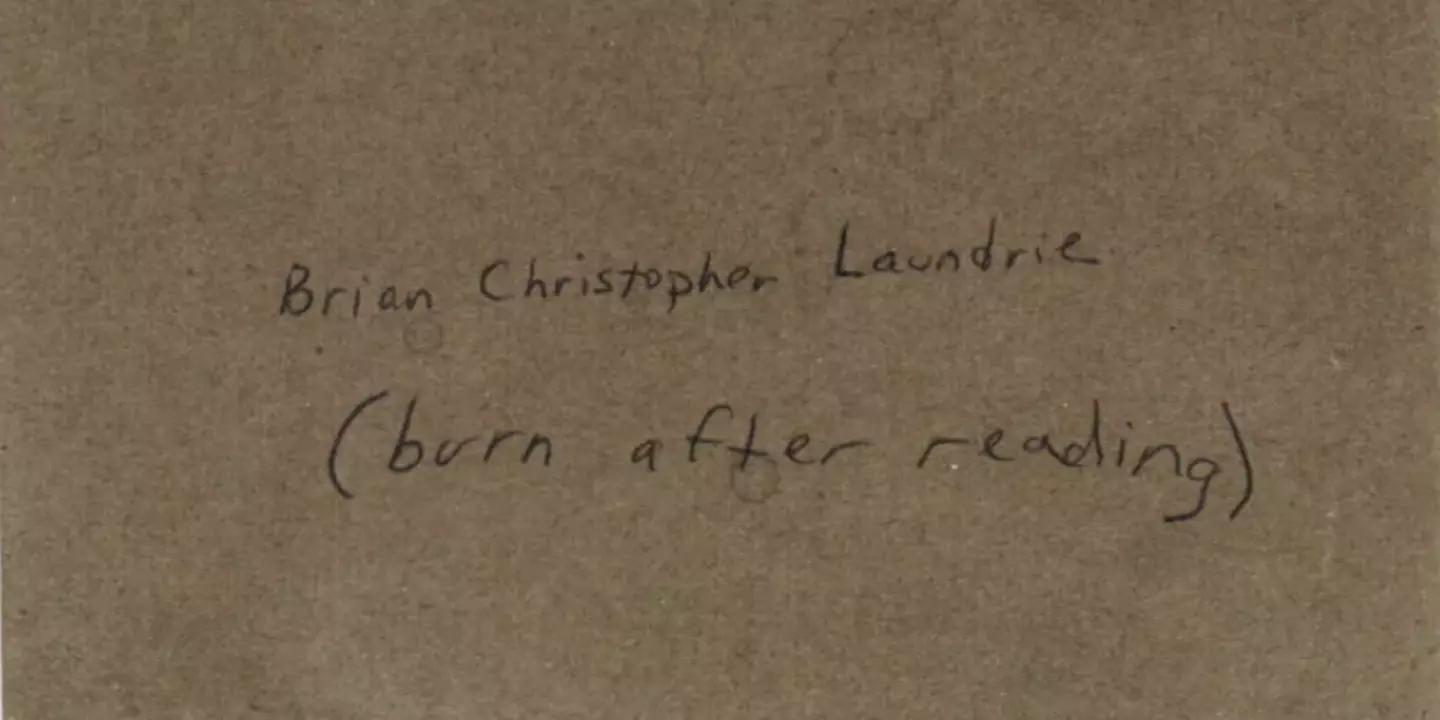 Brian Christopher Laundrie
(burn after reading)